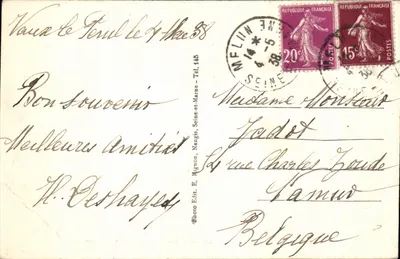 Vaux le Penil le 4 Mai 38
Bon souvenir
Meilleures amitiés
H. Deshayes
Photo Edit. E. Mignon, Nangis, Seine-et-Marne - Tél. 145
MELUN
14 *
4 - 5
38
SEINE
REPUBLIQUE FRANÇAISE
20c
POSTES
REPUBLIQUE FRANÇAISE
15c
POSTES
Madame
Jadot
rue Charles
Namur
Belgique